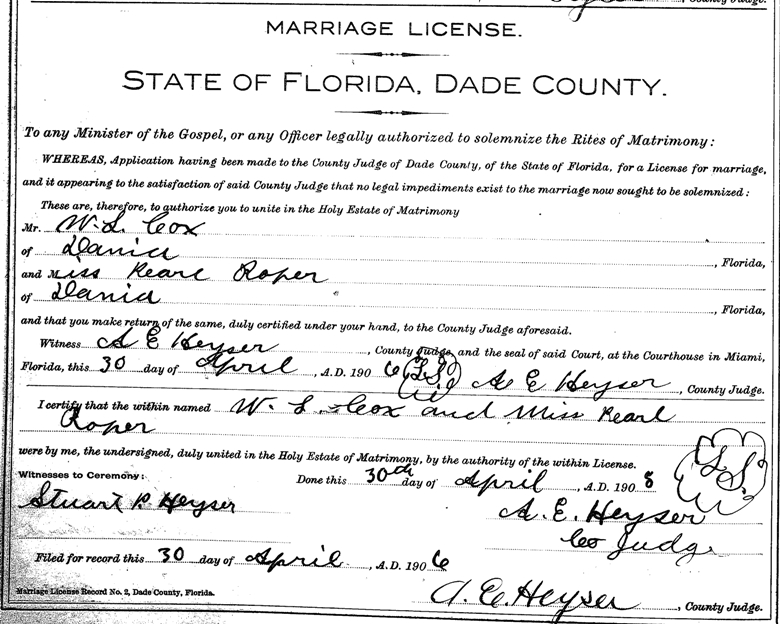 , County Judge.
MARRIAGE LICENSE.
STATE OF FLORIDA, DADE COUNTY.
To any Minister of the Gospel, or any Officer legally authorized to solemnize the Rites of Matrimony:
WHEREAS, Application having been made to the County Judge of Dade County, of the State of Florida, for a License for marriage,
and it appearing to the satisfaction of said County Judge that no legal impediments exist to the marriage now sought to be solemnized:
These are, therefore, to authorize you to unite in the Holy Estate of Matrimony
Mr. W. L. Cox
of Dania, Florida,
and Miss Pearl Roper
of Dania, Florida,
and that you make return of the same, duly certified under your hand, to the County Judge aforesaid.
Witness A E Heyser, County Judge, and the seal of said Court, at the Courthouse in Miami,
Florida, this 30 day of April, A.D. 1906 (L.S.) A E Heyser, County Judge.
I certify that the within named W. L. Cox and Miss Pearl
Roper
were by me, the undersigned, duly united in the Holy Estate of Matrimony, by the authority of the within License.
Witnesses to Ceremony: Done this 30th day of April, A.D. 1908 L.S.
Stuart P. Heyser A. E. Heyser
Co Judge
Filed for record this 30 day of April, A.D. 1906
Marriage License Record No. 2, Dade County, Florida. A. E. Heyser, County Judge.